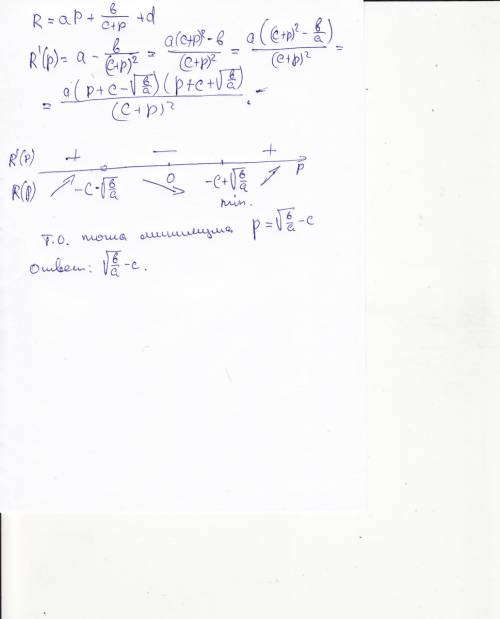 R = aP + в/(c+p) + d
R'(p) = a - в/(c+p)² = (a(c+p)² - в)/(c+p)² = a((c+p)² - в/a)/(c+p)² =
= a(p+c-√(в/a))(p+c+√(в/a))/(c+p)².
R'(p) + — + p
R(p) -c-√(в/a) 0 -c+√(в/a)
min.
Т.О. точка минимума p = √(в/a) - c
Ответ: √(в/a) - c.